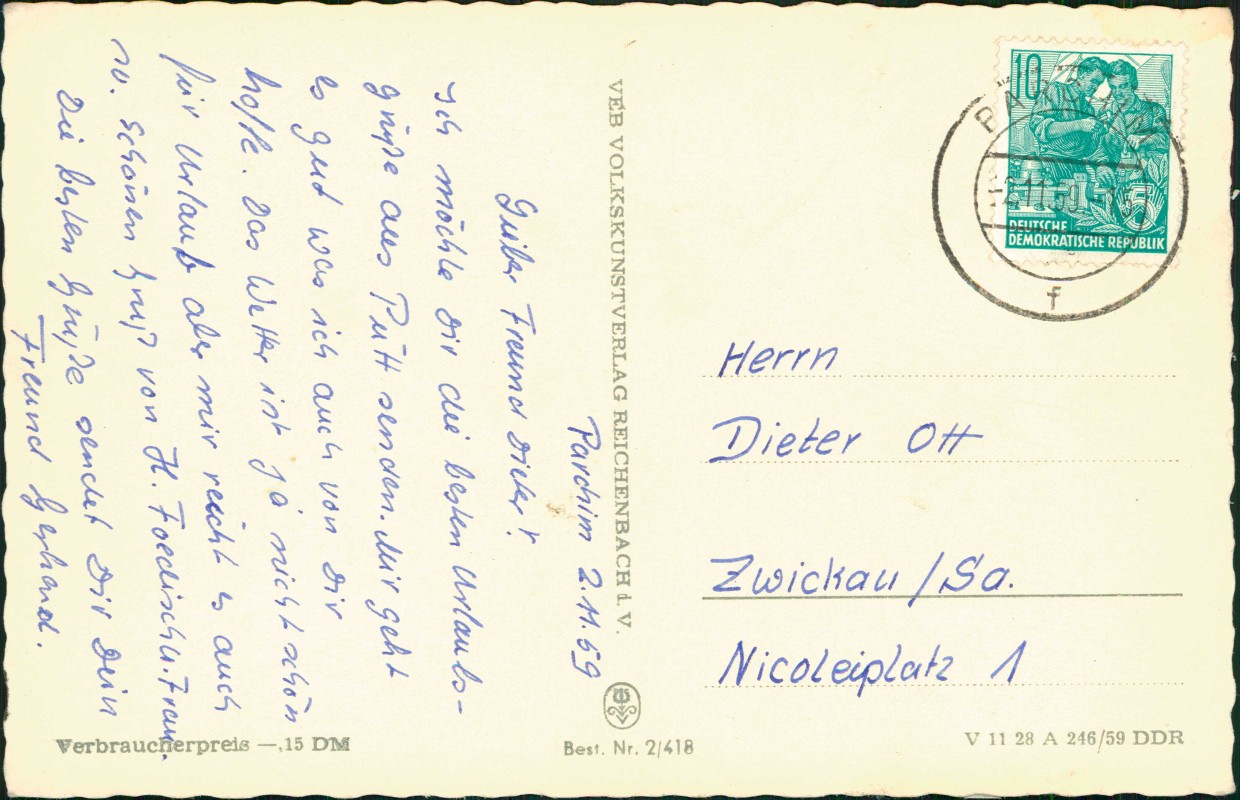 Parchim 2.11.59
Lieber Freund Dieter!
Ich möchte Dir die besten Urlaubs-
grüße aus Pütt senden. Mir geht
es gut was ich auch von Dir
hoffe. Das Wetter ist ja nicht schön
für Urlaub aber mir reicht es auch
schönen Gruß von H. Foedisch u. Frau.
Die besten Grüße sendet Dir Dein
Freund Gerhard.
VEB VOLKSKUNSTVERLAG REICHENBACH i. V.
10
PARCHIM
-2.11.59.-15
5
DEUTSCHE
DEMOKRATISCHE REPUBLIK
f
Herrn
Dieter Ott
Zwickau /Sa.
Nicoleiplatz 1
Verbraucherpreis —,15 DM
Best. Nr. 2/418
V 11 28 A 246/59 DDR